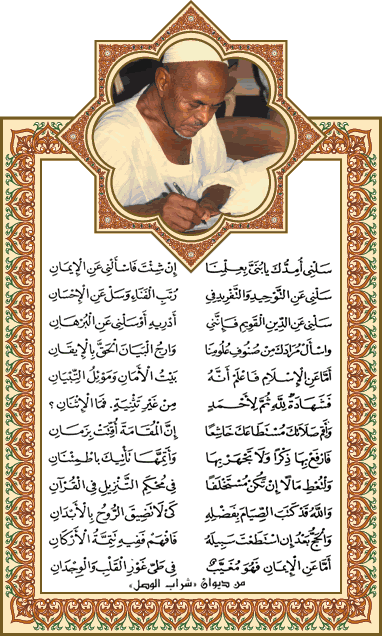 سَلْنِي أَمُدُّكَ يَا بُنَيَّ بِعِلْمِنَا إِنْ شِئْتَ فَاسْأَلْنِي عَنِ الْإِيمَانِ
سَلْنِي عَنِ التَّوْحِيدِ وَالتَّفْرِيدِ فِي رُتَبِ الْفَنَاءِ وَسَلْ عَنِ الْإِحْسَانِ
سَلْنِي عَنِ الدِّينِ الْقَوِيمِ فَإِنَّنِي أَدْرِيهِ أَوْ سَلْنِي عَنِ الْبُرْهَانِ
وَاسْأَلْ مُرَادَكَ مِنْ صُنُوفِ عُلُومِنَا وَارْجُ الْبَيَانَ الْحَقَّ بِالْإِيقَانِ
أَمَّا عَنِ الْإِسْلَامِ فَاعْلَمْ أَنَّهُ بَيْتُ الْأَمَانِ وَمَوْئِلُ التِّبْيَانِ
فَشَهَادَةٌ لِلَّهِ ثُمَّ لِأَحْمَدٍ مِنْ غَيْرِ تَثْنِيَةٍ. فَمَا الْإِثْنَانِ؟
وَأَقِمْ صَلَاتَكَ مُسْتَطَاعَكَ خَاشِعًا إِنَّ الْمُقَامَةَ أُقِّتَتْ بِزَمَانِ
فَارْفَعْ بِهَا ذِكْرًا وَلَا تَجْهَرْ بِهَا وَأَتِمَّهَا تَأْتِيكَ بِاطْمِئْنَانِ
وَلْتُعْطِ مَالًا إِنْ تَكُنْ مُسْتَخْلَفًا فِي مُحْكَمِ التَّنْزِيلِ فِي الْقُرْآنِ
وَاللَّهُ قَدْ كَتَبَ الصِّيَامَ بِفَضْلِهِ كَيْ لَا تَضِيقَ الرُّوحُ بِالْأَبْدَانِ
وَالْحَجُّ بَعْدُ إِنِ اسْتَطَعْتَ سَبِيلَهُ فَافْهَمْ فَفِيهِ تَتِمَّةُ الْأَرْكَانِ
أَمَّا عَنِ الْإِيمَانِ فَهُوَ مُغَيَّبٌ فِي طَيِّ غَوْرِ الْقَلْبِ وَالْوِجْدَانِ
من ديوان «شراب الوصل»